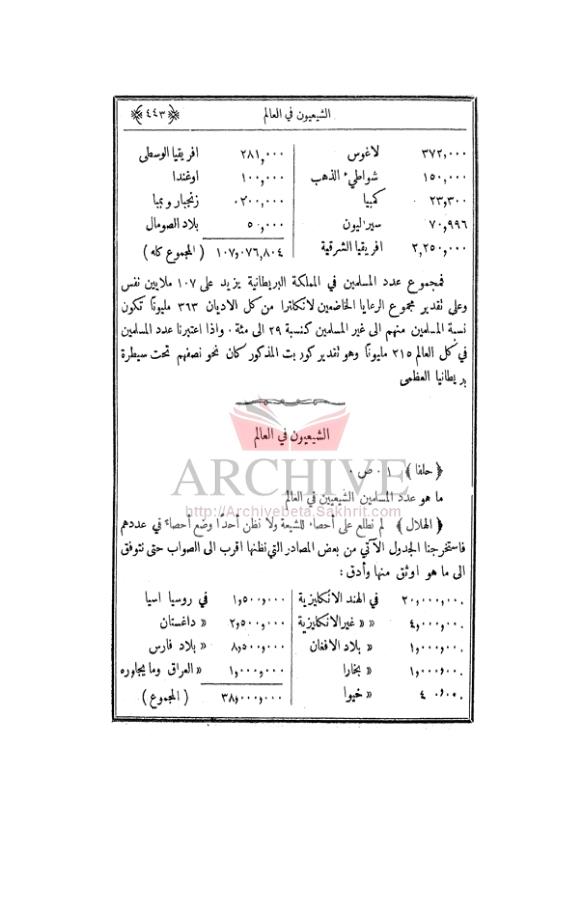 الشيعيون في العالم ﴿٤٤٣﴾
٣٧٢,٠٠٠ لاغوس ٢٨١,٠٠٠ افريقيا الوسطى
١٥٠,٠٠٠ شواطيء الذهب ١٠٠,٠٠٠ اوغندا
٢٣,٣٠٠ كمبيا ٠٢٠٠,٠٠٠ زنجبار و بمبا
٧٠,٩٩٦ سيراليون ٥٠,٠٠٠ بلاد الصومال
٢,٢٥٠,٠٠٠ افريقيا الشرقية ١٠٧,٠٧٦,٨٠٤ (المجموع كله)
فمجموع عدد المسلمين في المملكة البريطانية يزيد على ١٠٧ ملايين نفس
وعلى تقدير مجموع الرعايا الخاضعين لانكلترا من كل الاديان ٣٦٣ مليونًا تكون
نسبة المسلمين منهم الى غير المسلمين كنسبة ٢٩ الى مئة . واذا اعتبرنا عدد المسلمين
في كل العالم ٢١٥ مليونًا وهو تقدير كوربت المذكور كان نحو نصفهم تحت سيطرة
بريطانيا العظمى
الشيعيون في العالم
﴿ حلفا ﴾ ١ . ص .
ما هو عدد المسلمين الشيعيين في العالم
﴿ الهلال ﴾ لم نطلع على احصاء للشيعة ولا نظن أحدًا وضع أحصاءً في عددهم
فاستخرجنا الجدول الآتي من بعض المصادر التي نظنها اقرب الى الصواب حتى نتوفق
الى ما هو اوثق منها وأدق :
٢٠,٠٠٠,٠٠٠ في الهند الانكليزية ١,٥٠٠,٠٠٠ في روسيا اسيا
٤,٠٠٠,٠٠٠ « « غير الانكليزية ٢,٥٠٠,٠٠٠ « داغستان
١,٠٠٠,٠٠٠ « بلاد الافغان ٨,٥٠٠,٠٠٠ « بلاد فارس
١,٠٠٠,٠٠٠ « بخارا ١,٠٠٠,٠٠٠ « العراق وما يجاوره
« خيوا ٣٨,٠٠٠,٠٠٠ (المجموع)
ARCHIVE
http://Archivebeta.Sakhrit.com